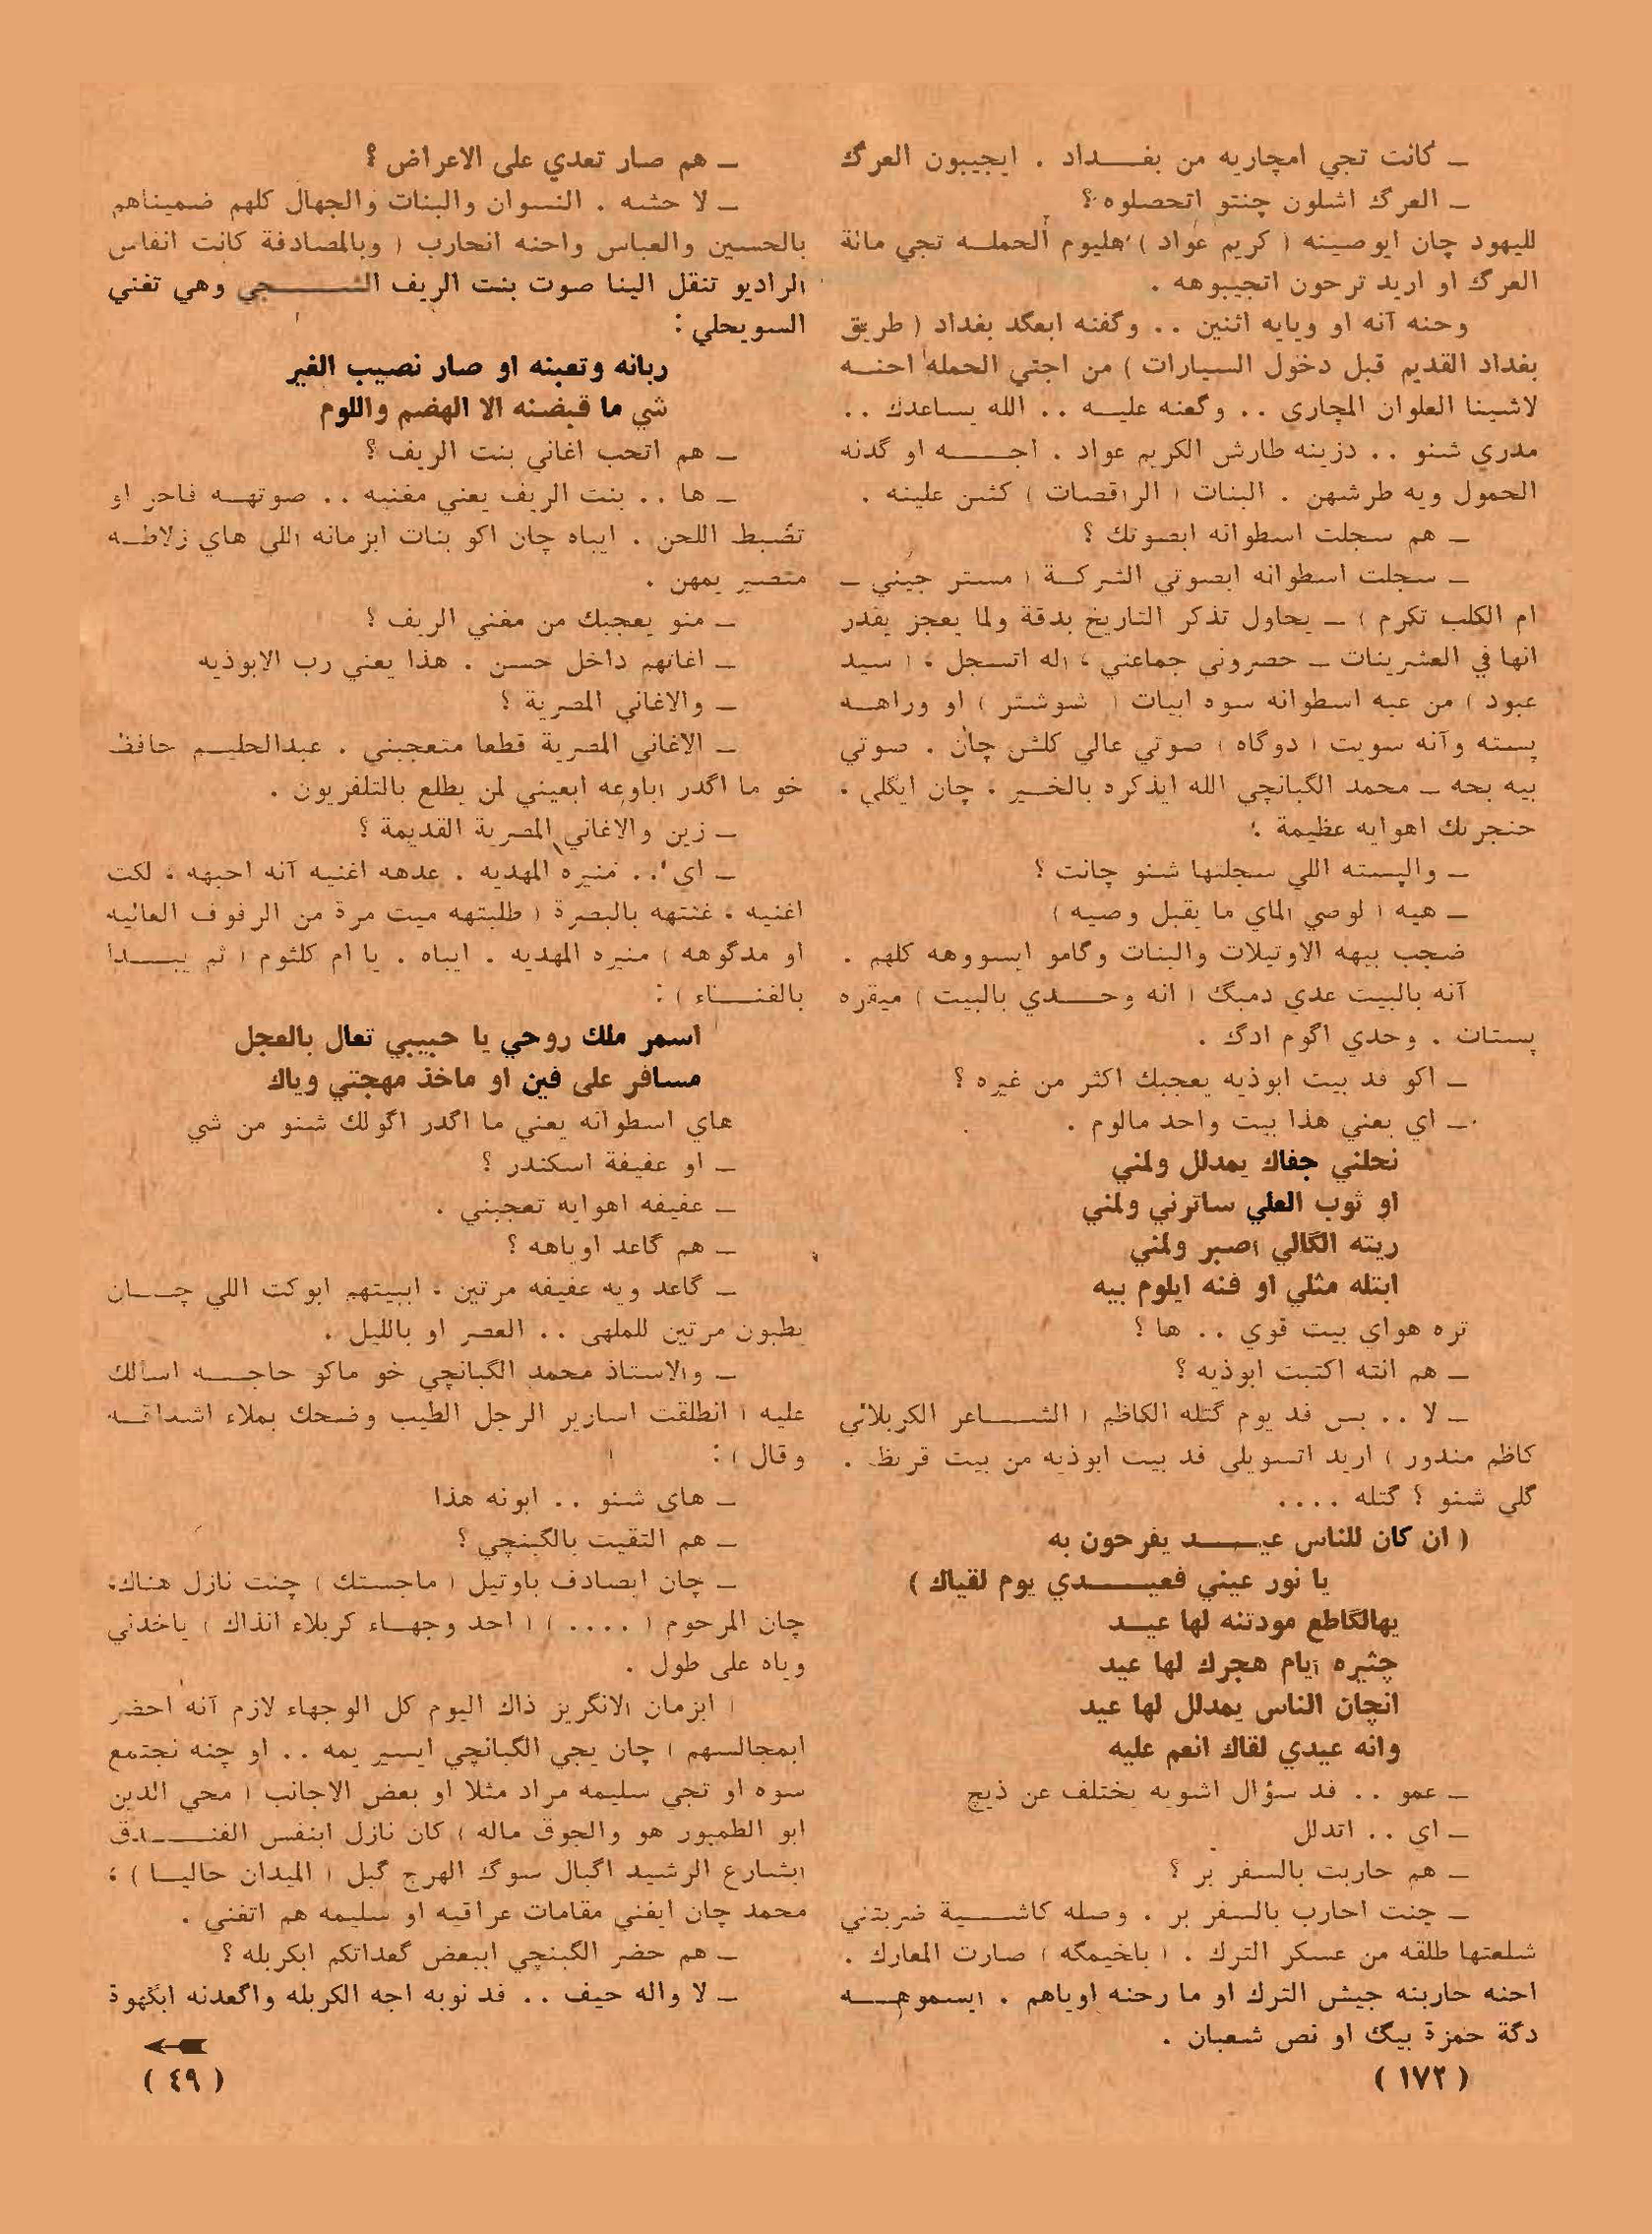 ـ كانت تجي امچاريه من بغـــداد . ايجيبون العرگ
ـ العرگ اشلون چنتو اتحصلوه ؟
لليهود چان ابو صينه ( كريم عواد ) هليوم الحملـه تجي مانة
العرگ او اريد ترحون اتجيبوهه .
وحنه آنه او ويايه اثنين . . وگفنه ابعگد بغداد ( طريق
بغداد القديم قبل دخول السيارات ) من اجتي الحمله احنـه
لاشينا العلوان المچاري . . وگعنه عليـه . . الله يساعدك . .
مدري شنو . . دزينه طارش الكريم عواد . اجـــه او گدنه
الحمول ويه طرشهن . البنات ( الراقصات ) كثن علينه .
ـ هم سجلت اسطوانه ابصوتك ؟
ـ سجلت اسطوانه ابصوتي الشركـة ( مستر جيني ـ
ام الكلب تكرم ) ـ يحاول تذكر التاريخ بدقة ولما يعجز يقدر
انها في العشرينات ـ حصروني جماعتي ، اله اتسجل ، ( سيد
عبود ) من عبه اسطوانه سوه ابيات ( شوشتر ) او وراهـه
پسته وآنه سويت ( دوگاه ) صوتي عالي كلش چان . صوتي
بيه بحه ـ محمد الگبانچي الله ايذكره بالخـير ، چان ايگلي ،
حنجرتك اهوايه عظيمة ؛
ـ والپسته اللي سجلتها شنو چانت ؟
ـ هيه ( لوصي الماي ما يقبل وصيه )
ضجب بيهه الاوتيلات والبنات وگامو ايسووهه كلهم .
آنه بالبيت عدي دمبگ ( انه وحـــدي بالبيت ) ميقره
پستات . وحدي اگوم ادگ .
ـ اكو فد بيت ابوذيه يعجبك اكثر من غيره ؟
ـ اي يعني هذا بيت واحد مالوم .
نحلني جفاك يمدلل ولمني
او ثوب العلي ساترني ولمني
ريته الگالي اصبر ولمني
ابتله مثلي او فنه ايلوم بيه
تره هواي بيت قوي . . ها ؟
ـ هم انته اكتبت ابوذيه ؟
ـ لا . . بس فد يوم گتله الكاظم ( الشـــاعر الكربلائي
كاظم مندور ) اريد اتسويلي فد بيت ابوذيه من بيت قريظ .
گلي شنو ؟ گتله . . . .
( ان كان للناس عيـــد يفرحون به
يا نور عيني فعيـــدي يوم لقياك )
يهالگاطع مودتنه لها عيـد
چثيره ايام هجرك لها عيد
انچان الناس يمدلل لها عيد
وانه عيدي لقاك انعم عليه
ـ عمو . . فد سؤال اشويه يختلف عن ذيچ
ـ اي . . اتدلل
ـ هم حاربت بالسفر بر ؟
ـ چنت احارب بالسفر بر . وصله كاشـــية ضربتني
شلعتها طلقه من عسكر الترك . ( باخيمگه ) صارت المعارك .
احنه حاربنه جيش الترك او ما رحنه اوياهم . ايسموهـــه
دگة حمزة بيگ او نص شعبان .
( ١٧٢ )
ـ هم صار تعدي على الاعراض ؟
ـ لا حشه . النسوان والبنات والجهال كلهم ضميناهم
بالحسين والعباس واحنه انحارب ( وبالمصادفة كانت انفاس
الراديو تنقل الينا صوت بنت الريف الشـــجي وهي تغني
السويحلي :
ربانه وتعبنه او صار نصيب الغير
شي ما قبضنه الا الهضم واللوم
ـ هم اتحب اغاني بنت الريف ؟
ـ ها . . بنت الريف يعني مغنيه . . صوتهـه فاخر او
تضبط اللحن . ايباه چان اكو بنات ابزمانه اللي هاي زلاطـه
متصير يمهن .
ـ منو يعجبك من مغني الريف ؟
ـ اغانهم داخل حسن . هذا يعني رب الابوذيه
ـ والاغاني المصرية ؟
ـ الاغاني المصرية قطعا متعجبني . عبدالحليـم حافظ
خو ما اگدر اباوعه ابعيني لمن يطلع بالتلفزيون .
ـ زين والاغاني المصرية القديمة ؟
ـ اي . . منيره المهديه . عدهه اغنيه آنه احبهه ، لكت
اغنيه ، غنتهه بالبصرة ( طلبتهه ميت مرة من الرفوف العاليه
او مدگوهه ) منيره المهديه . ايباه . يا ام كلثوم ( ثم يبـــدا
بالغنـــاء ) :
اسمر ملك روحي يا حبيبي تعال بالعجل
مسافر على فين او ماخذ مهجتي وياك
هاي اسطوانه يعني ما اگدر اگولك شنو من شي
ـ او عفيفة اسكندر ؟
ـ عفيفه اهوايه تعجبني .
ـ هم گاعد اوياهه ؟
ـ گاعد ويه عفيفه مرتين ، اببيتهم ابوكت اللي چـــان
يطبون مرتين للملهى . . العصر او بالليل .
ـ والاستاذ محمد الگبانچي خو ماكو حاجـه اسالك
عليه ( انطلقت اسارير الرجل الطيب وضحك بملاء اشداقـه
وقال ) :
ـ هاي شنو . . ابونه هذا
ـ هم التقيت بالگبنچي ؟
ـ چان ابصادف باوتيل ( ماجستك ) چنت نازل هناك،
چان المرحوم ( . . . . ) ( احد وجهـاء كربلاء انذاك ) ياخذني
وياه على طول .
( ابزمان الانگريز ذاك اليوم كل الوجهاء لازم آنه احضر
ابمجالسهم ) چان يجي الگبانچي ايسير يمه . . او چنه نجتمع
سوه او تجي سليمه مراد مثلا او بعض الاجانب ( محي الدين
ابو الطمبور هو والجوق ماله ) كان نازل ابنفس الفنـــدق
ابشارع الرشيد اگبال سوگ الهرج گبل ( الميدان حاليـا ) ،
محمد چان ايغني مقامات عراقيه او سليمه هم اتغني .
ـ هم حضر الگبنچي اببعض گعداتكم ابكربله ؟
ـ لا واله حيف . . فد نوبه اجه الكربله واگعدنه ابگهوة
( ٤٩ )